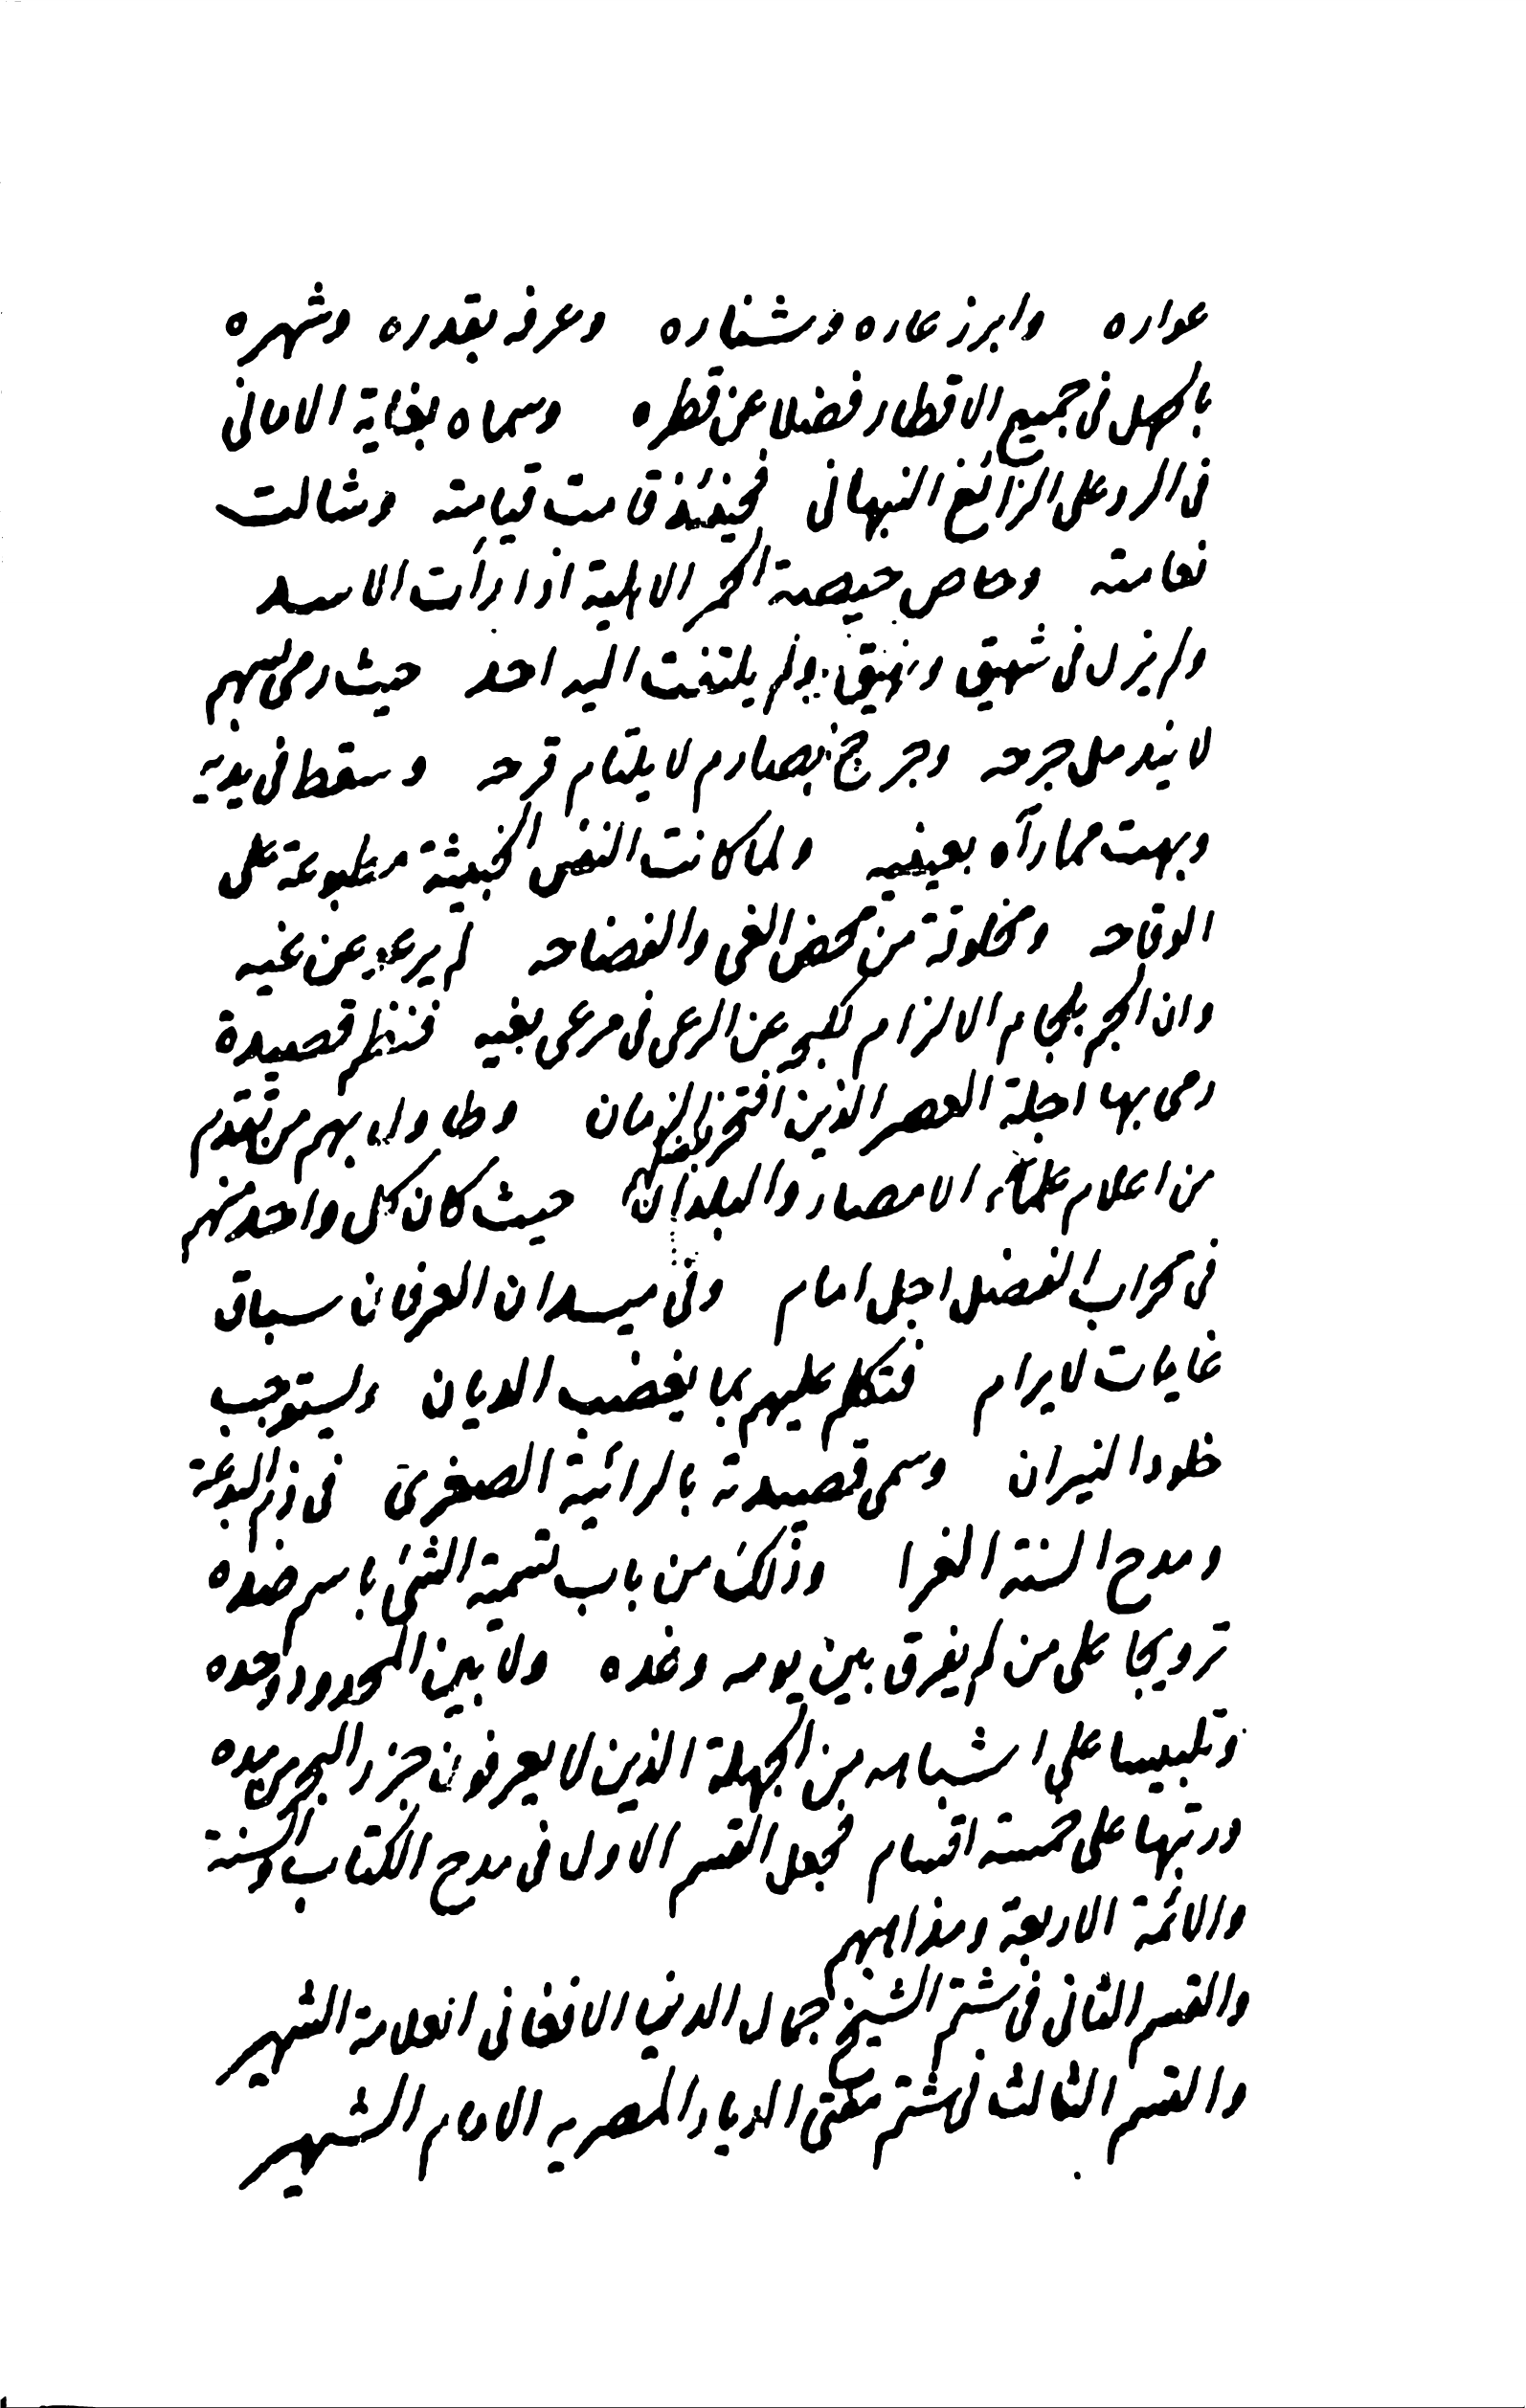 عواره وابرز عاره وشناره وعرف بقدره وشهره
بالجهل في جميع الاقطار فضلا عن قطره وسماه بغاية الاماني
في الرد على الزائغ النبهاني فحينئذ قامت قيامته وشالت
نعامته وحاص حيصة الحمر الاهلية اذا رأت الاسد
ولم يزل في شهيق ونهيق ولم يلتفت اليه احد حيث رمي بسهم
لا يندمل جرحه وجرح بصارم لا يلتئام قرحه وسقط في يديه
وبهت مما رآه بعينيه ولما كانت النفس الخبيثة مطبوعة على
الوقاحه ومخلوقة من محض الغي والفضاحه لم يرعو عن غيه
وان الجم بلجام الالزام ليكبو عن الرعي في مرعى بغيه فنظم قصيدة
رمى بها اجلة العصر الذين افتخر بهم الزمان وطاول بهم من تقدم
من اعلام علماء الامصار والبلدان حيث كان كل واحد منهم
في محراب الفضل اجل امام وفي ميدان العرفان سباق
غايات لا يرام فتكلم عليهم بما يغضب الديان ويستوجب
خلود النيران وسمى قصيدته بالرائية الصغرى في ذم البدعة
ومدح السنة الغرا وذلك من باب تسمية الشئ باسم ضده
ترويجا على من لم يفرق بين يومه وغده ولا بين المحدود وحده
وتلبيسا على اشباهه من الجهلة الذين لا يعرفون جزر البحر من مده
ورتبها على خمسة اقسام فجعل القسم الاول في مدح الكتاب والسنة
والائمة الاربعة ومذاهبهم
والقسم الثاني في شتم الشيخ جمال الدين الافغاني العلامة الشهير
والقسم الثالث في شتم مفتي الديار المصريه الامام الشهير